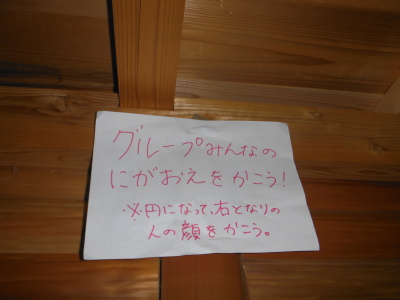 グループみんなの
にがおえをかこう!
※円になって、右となりの
人の顔をかこう。